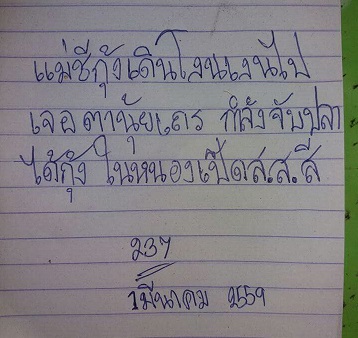 แม่ชีกุ้งเดินโงนเงนไป
เจอตานุ้ยเถร กำลังจับปลา
ได้กุ้ง ในหนองเป็ดส.ส.สี
237
1 มีนาคม 2559